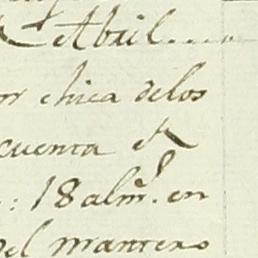 Abril....
chica delos
cuenta el
: 18 alm.ˢ en
del mantero